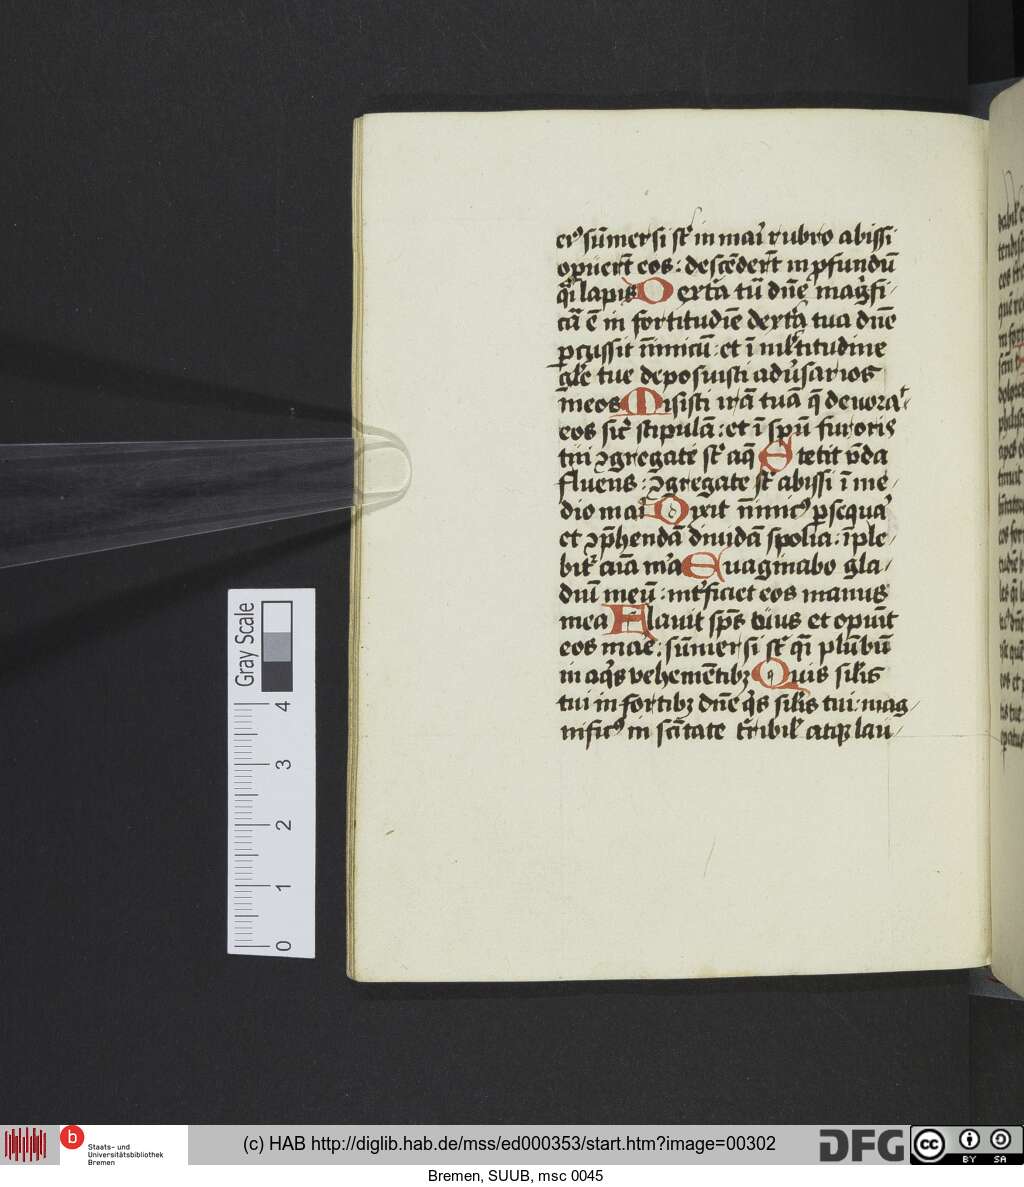 er᷒ sūmersi st̄ in mar̄ rubro abissi
opuer̄t eos : descēder̄t in ꝓfundū
qͥ lapis Dexťa tū dn̄e mag̾fi /
cā ē in fortitudīe dexťa tua dn̄e
ꝑcussit īnimicū : et ī mĺtitudine
gl̄e tue deposuisti adūsarios
meos Misisti irā tuā q̄ deuorat᷒
eos sic̄ stipulā : et ī spū furoris
tui ꝯgregate st̄ aq̄ Stetit vn̄da
fluens : ꝯgregate st̄ abissi ī me /
dio mar̄ Dixit īnimic᷒ ꝑsequar̄
et ꝯp̄hendā diuidā spolia : īple /
bit᷒ aīa m̄a Euaginabo gla /
diū meū : int̄ficiet eos manus
mea Flauit sp̄s tuus et opuit
eos mare : sūmersi st̄ qͥ plūbū
in aqͥs vehemētibꝫ Quis silis
tui in fortibꝫ dn̄e qͥs silis tui : mag /
nific᷒ in sc̄itate t̄ribil̄ atqꝫ lau /
Gray Scale
4
3
2
1
0
b
Staats- und
Universitätsbibliothek
Bremen
(c) HAB http://diglib.hab.de/mss/ed000353/start.htm?image=00302
DFG
cc
BY SA
Bremen, SUUB, msc 0045